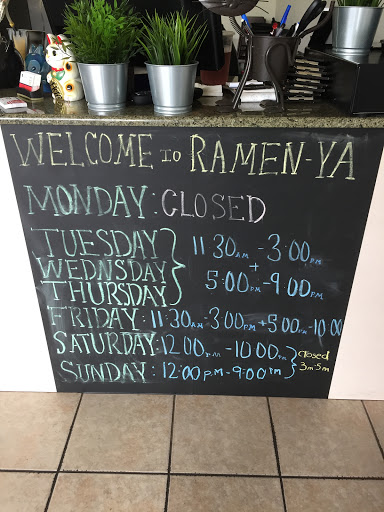 WELCOME TO RAMEN-YA
MONDAY: CLOSED
TUESDAY
WEDNSDAY
THURSDAY
11 30AM - 3:00PM
+
5:00PM - 9:00PM
FRIDAY: 11:30AM - 3:00PM + 5:00PM - 10:00
SATURDAY: 12:00PM - 10:00PM
SUNDAY: 12:00 P.M - 9:00 PM
closed
3 - 5